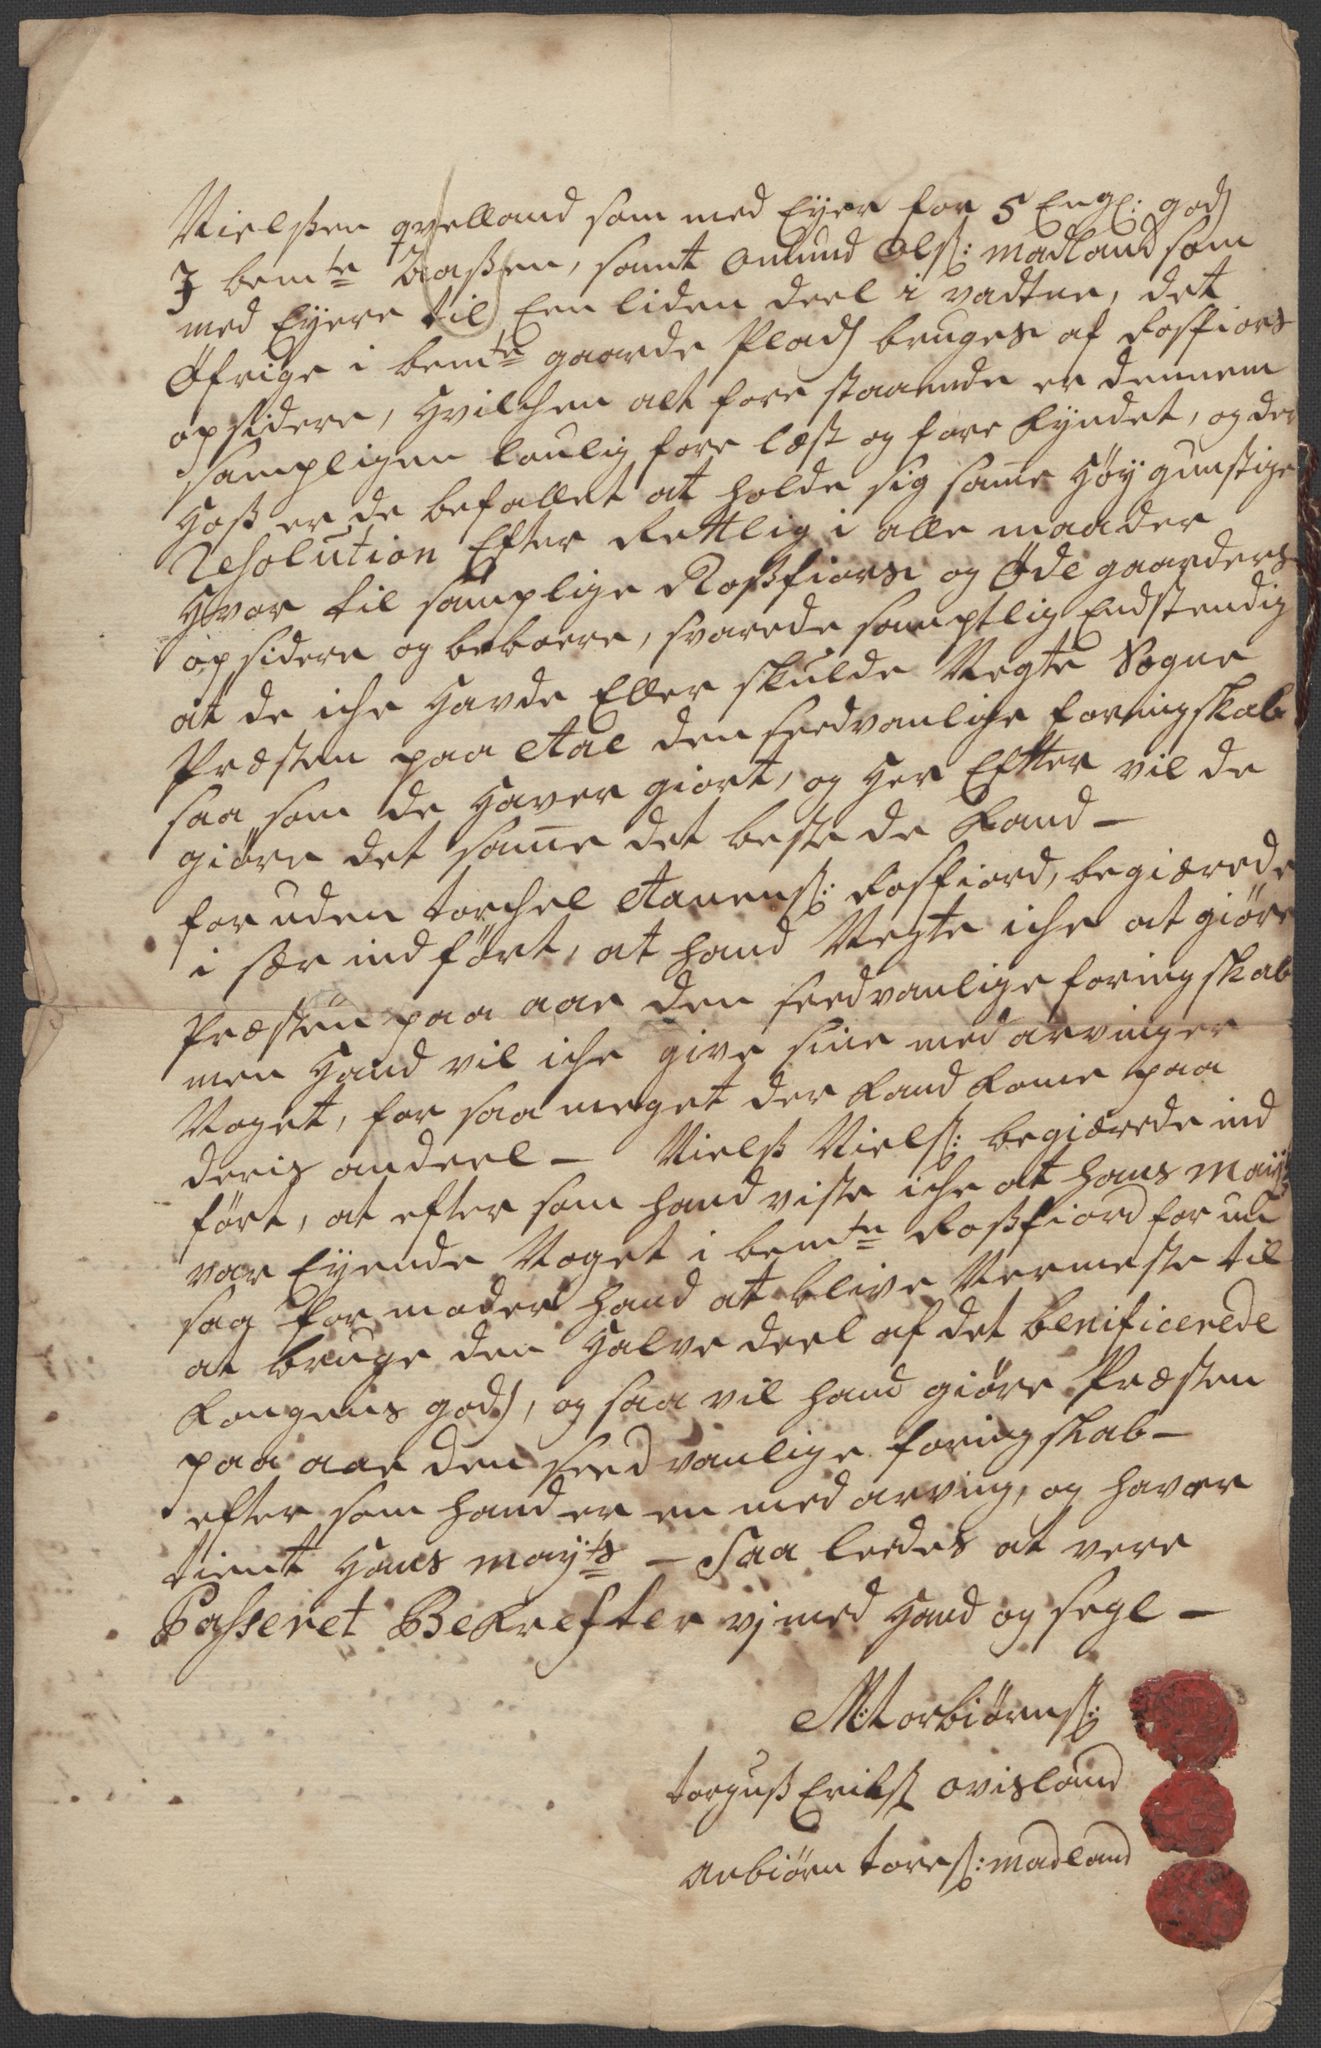 Nielßen qvelland som med Eyer for 5 Engl: godß
I bemte Aaßen, samt Omund Olß: Madland som
med Eyere til Een liden deel i vadtne, det
Øfrige i bemte gaarde Pladß bruges af Rosfiors
opsidere, hvilchen alt fore staaende er dennem
sampligen loulig fore læst og fore kyndet, og der
hoß er de befallet at holde sig samme høygunstige
Resolution Efter Rettlig i alle maader
hvor til samplige Roßfiors og Øde gaarders
opsidere og beboere, svarede samptlig Endstendig
at de iche havde Eller skulde Negte Sogne
Præsten paa Aae den seedvanlige foringskab
saa som de haver giort, og her Effter vil de
giøre det samme det beste de kand –
for uden torchel Aanenß: Rosfiord, begiærede
i sær ind ført, at hand Negte iche at giøre
Præsten paa aae den seedvanlige foringskab
men hand vil iche give sine med arvinger
Noget, for saa meget der kand kome paa
deris andeel – Nielß Nielß: begiærede ind
ført, at efter som hand viste iche at hans Mayts
var Eyende Noget i bemte Roßfiord for nu
saa formoder hand at blive Nermeste til
at bruge den halve deel af det benificerede
kongens godß, og saa vil hand giøre Præsten
paa aae den seedvanlige foringskab –
efter som hand er en med arving, og haver
tient hans Mayts – Saa leedes at vere
Passeret Bekrefter vj med hand og segl –
M: torbiørnß:
torguß Erikß ovisland
Anbiørn toreß: Madland